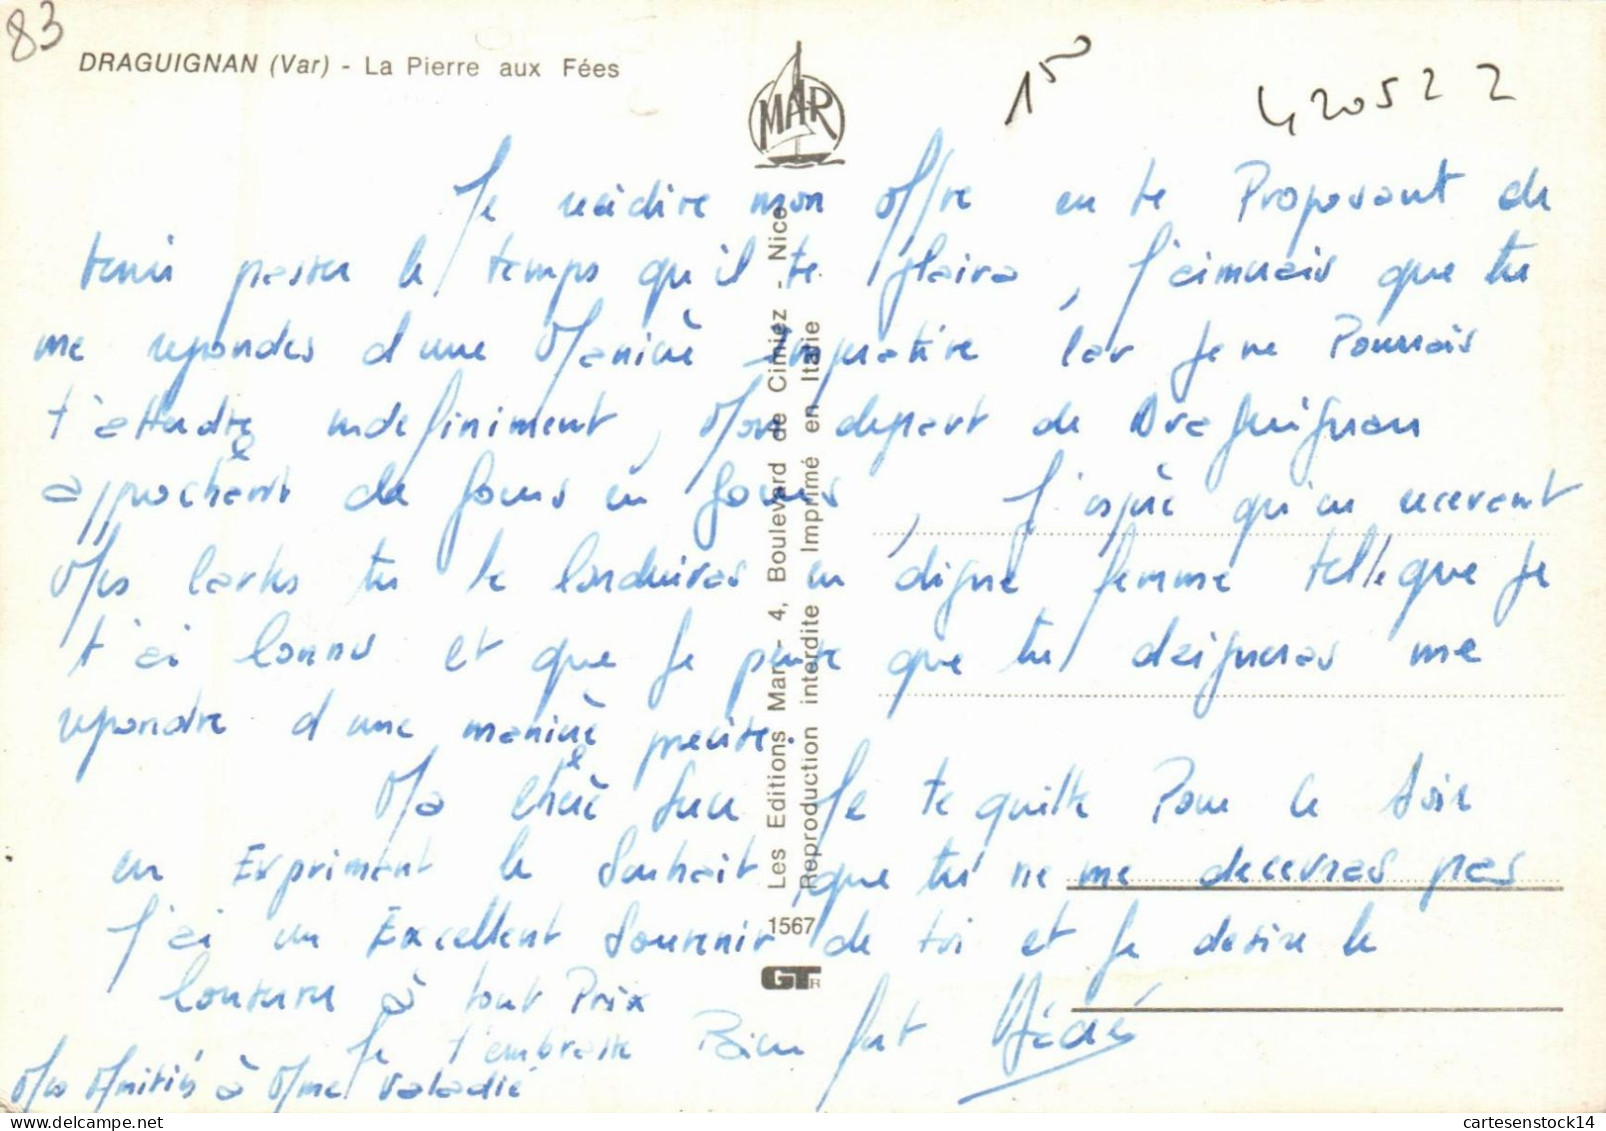 83
DRAGUIGNAN (Var) - La Pierre aux Fées
MAR
15⁰
420522
Je réidire mon offre en te Proposant de
tenir passer le temps qu'il te plaira, J'aimerais que tu
me repondes d'une Maniere Imperative Car Je ne Pourrais
t'attendre indefiniment, Mon depart de Draguignan
approchent de Jours en Jours, J'espère qu'en recevant
Mes Cartes tu te Conduiras en digne femme telle que Je
t'ai Connu et que Je pense que tu daigneras me
repondre d'une maniere precise.
Ma chère Je te quitte Pour Ce Soir
en Expriment le Souhait, que tu ne me decevras pas
J'ai un Excellent Souvenir de toi et Je desire le
Conserver à tout Prix
Je t'embrasse Bien fort
Mes Amitiés à Mme Valadié
Les Editions Mar - 4, Boulevard de Cimiez - Nice
Reproduction interdite Imprimé en Italie
1567
GTR
cartesenstock14